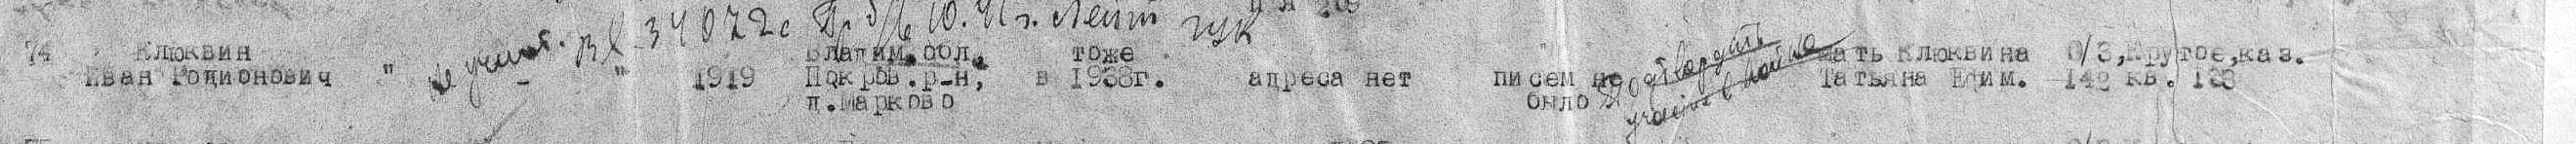 74 Клюквин Владим.обл. тоже " мать Клюквина О/З, Крутое, каз.
Иван Родионович " - " 1919 Покров.р-н, в 1938г. адреса нет писем не Татьяна Ефим. 142 кв. 133
д.Марково было
не учит. Вл 34072с
подтвердить
участие в войне